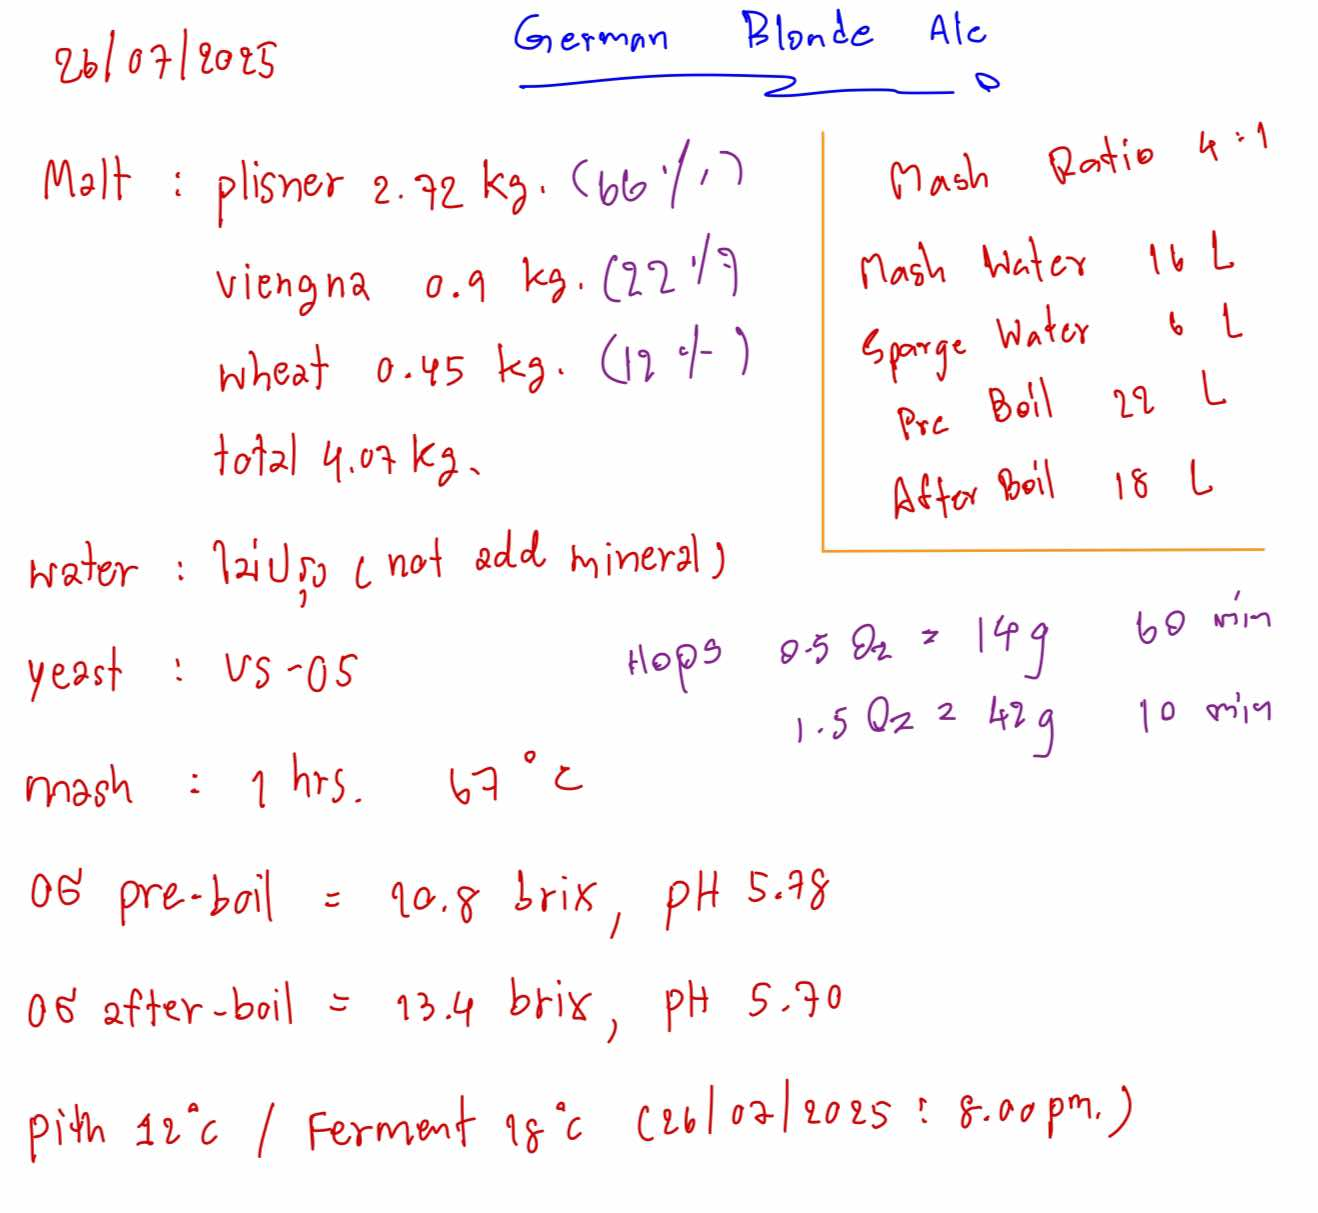 26/07/2025
German Blonde Ale
Malt : plisner 2.72 kg. (66%)
viengna 0.9 kg. (22%)
wheat 0.45 kg. (12%)
total 4.07 kg.
Mash Ratio 4:1
Mash Water 16 L
Sparge Water 6 L
Pre Boil 22 L
After Boil 18 L
water : ไม่ปรุง (not add mineral)
yeast : US-05
Hops 0.5 Oz = 14g 60 min
1.5 Oz = 42g 10 min
mash : 1 hrs. 67 °c
OG pre-boil = 10.8 brix, pH 5.78
OG after-boil = 13.4 brix, pH 5.70
pith 12°c / Ferment 18°c (26/07/2025 : 8.00 pm.)